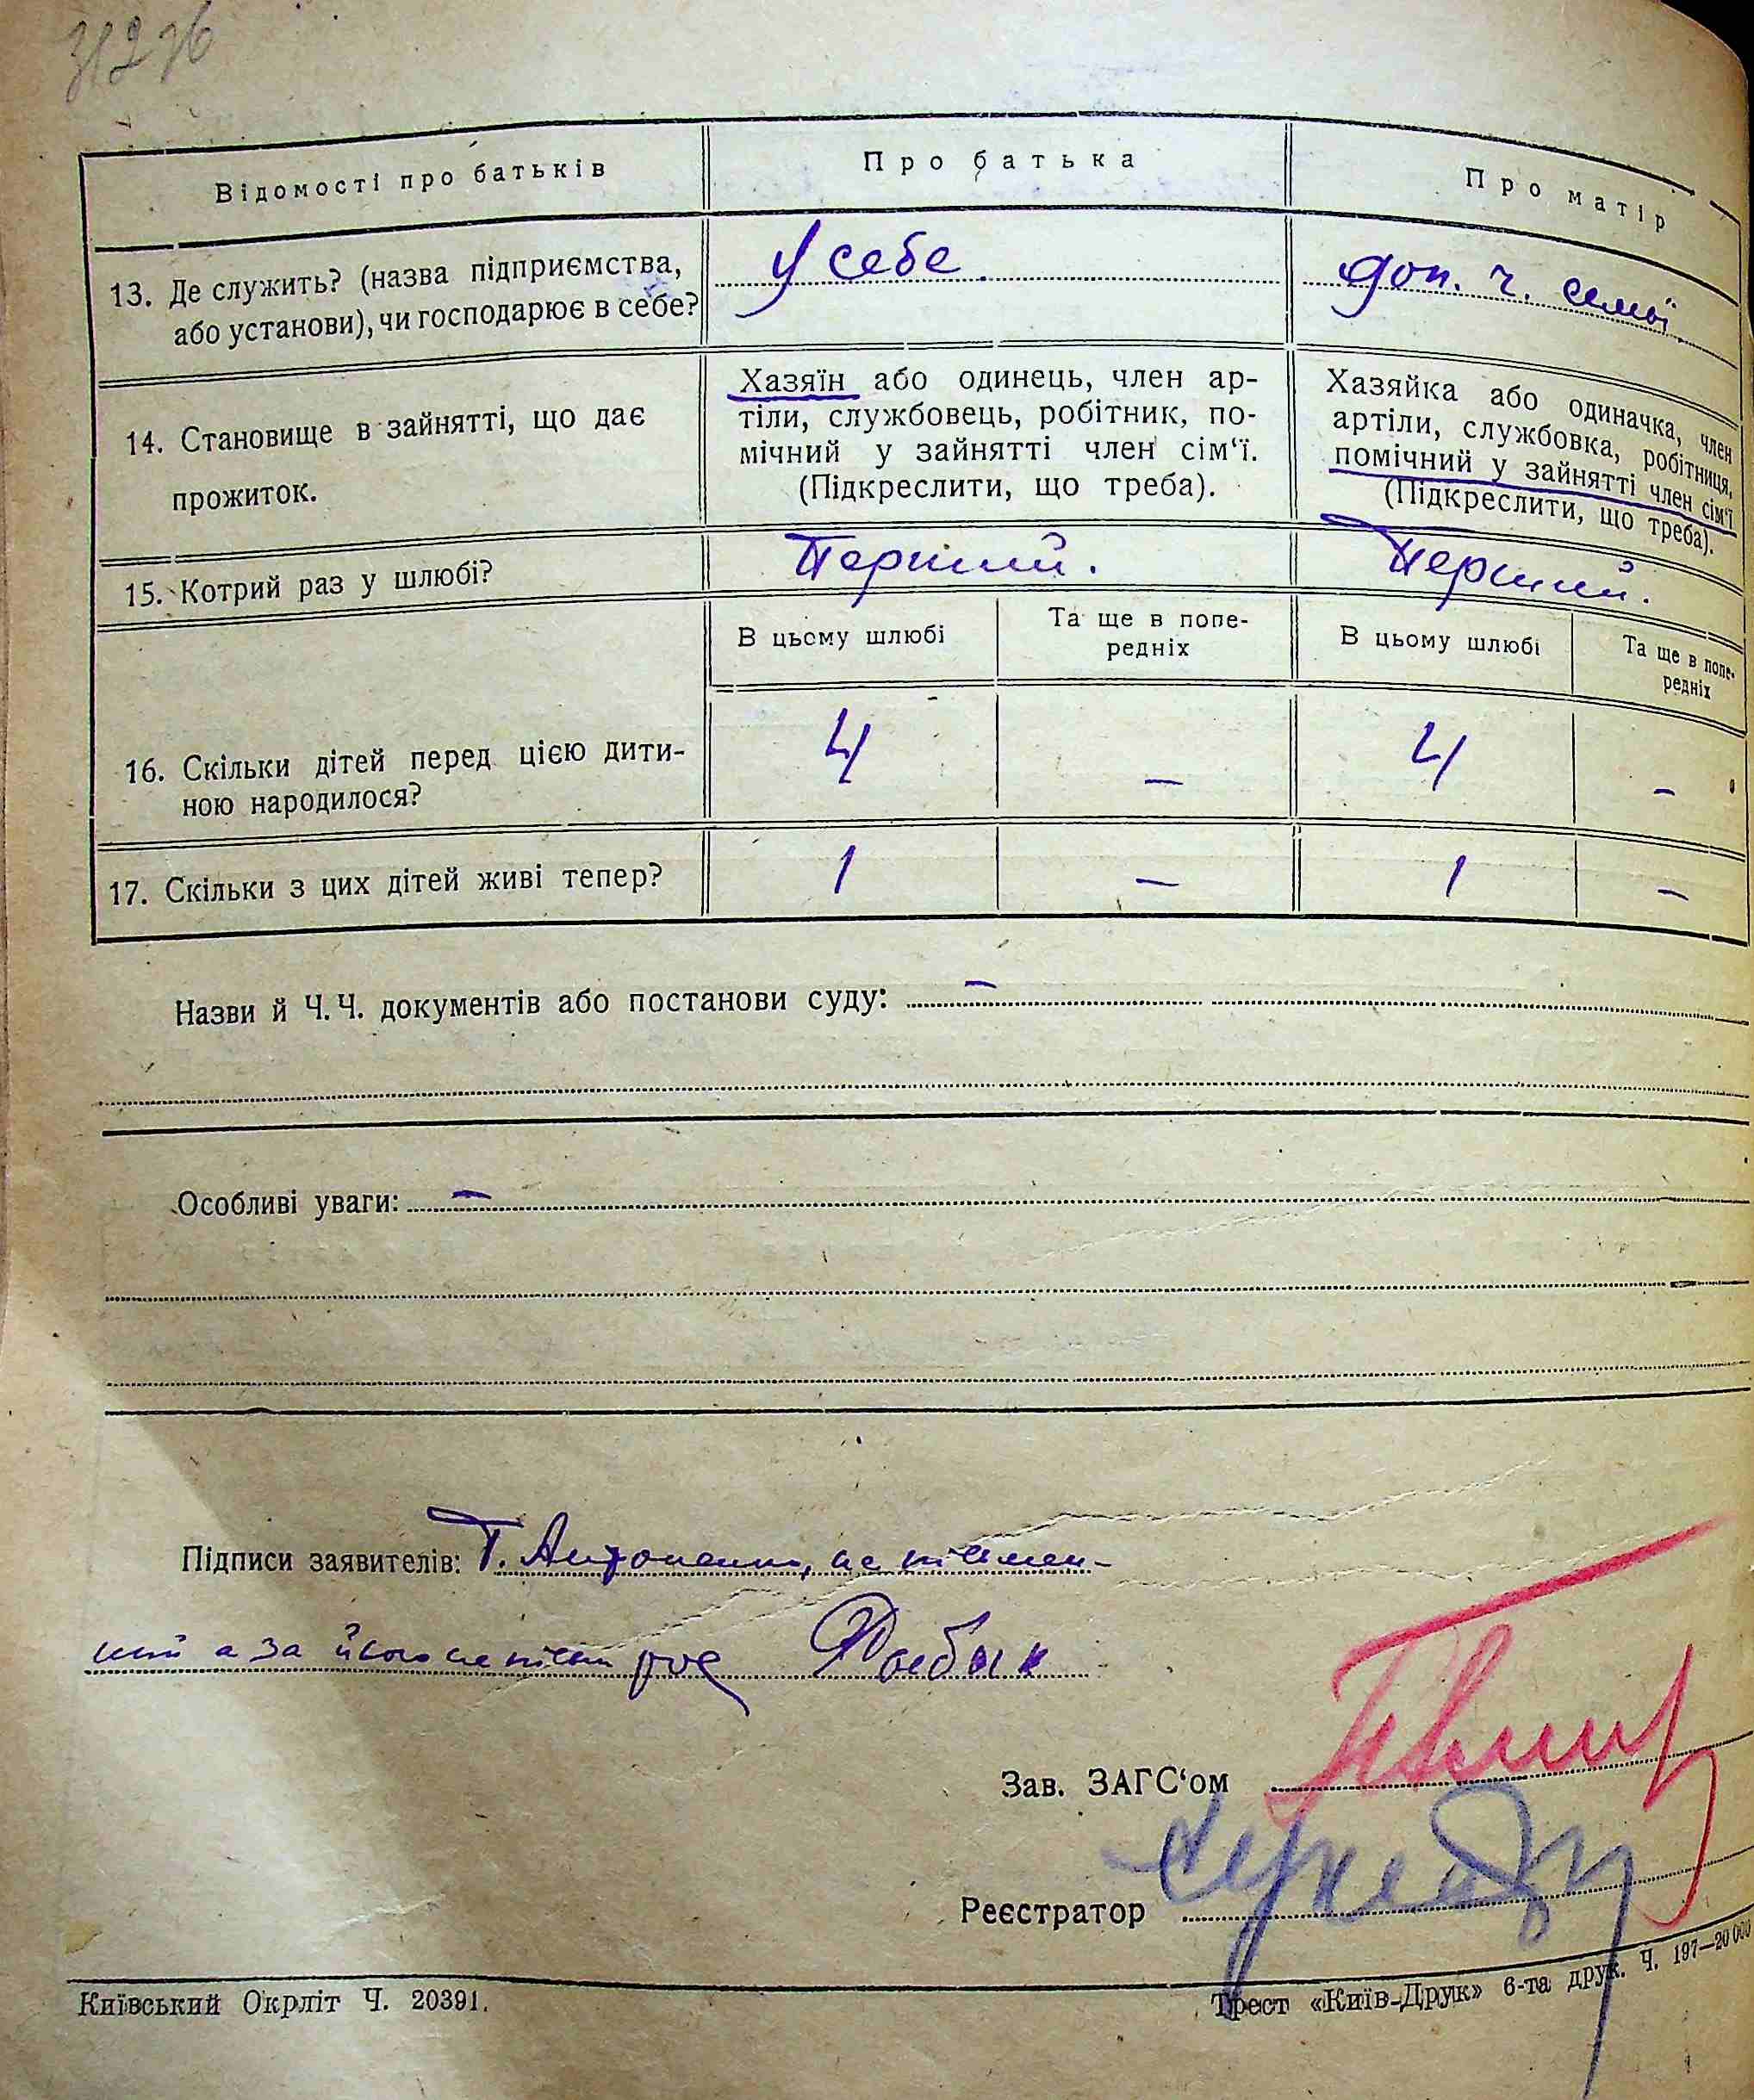 31276
Відомості про батьків
Про батька
Про матір
13. Де служить? (назва підприємства,
або установи), чи господарює в себе?
у себе.
доп. ч. семьї
14. Становище в зайнятті, що дає
прожиток.
Хазяїн або одинець, член ар-
тіли, службовець, робітник, по-
мічний у зайнятті член сім'ї.
(Підкреслити, що треба).
Хазяйка або одиначка, член
артіли, службовка, робітниця,
помічний у зайнятті член сім'ї.
(Підкреслити, що треба).
15. Котрий раз у шлюбі?
Перший.
Перший.
В цьому шлюбі
Та ще в попе-
редніх
В цьому шлюбі
Та ще в попе-
редніх
16. Скільки дітей перед цією дити-
ною народилося?
4
—
4
—
17. Скільки з цих дітей живі тепер?
1
—
1
—
Назви й Ч. Ч. документів або постанови суду: —
Особливі уваги: —
Підписи заявителів: Т. Антоненко, не письмен-
ний а за його
Зав. ЗАГС'ом
Реєстратор
Київський Окрліт Ч. 20391.
Трест «Київ-Друк» 6-та друк. Ч. 197—20 000